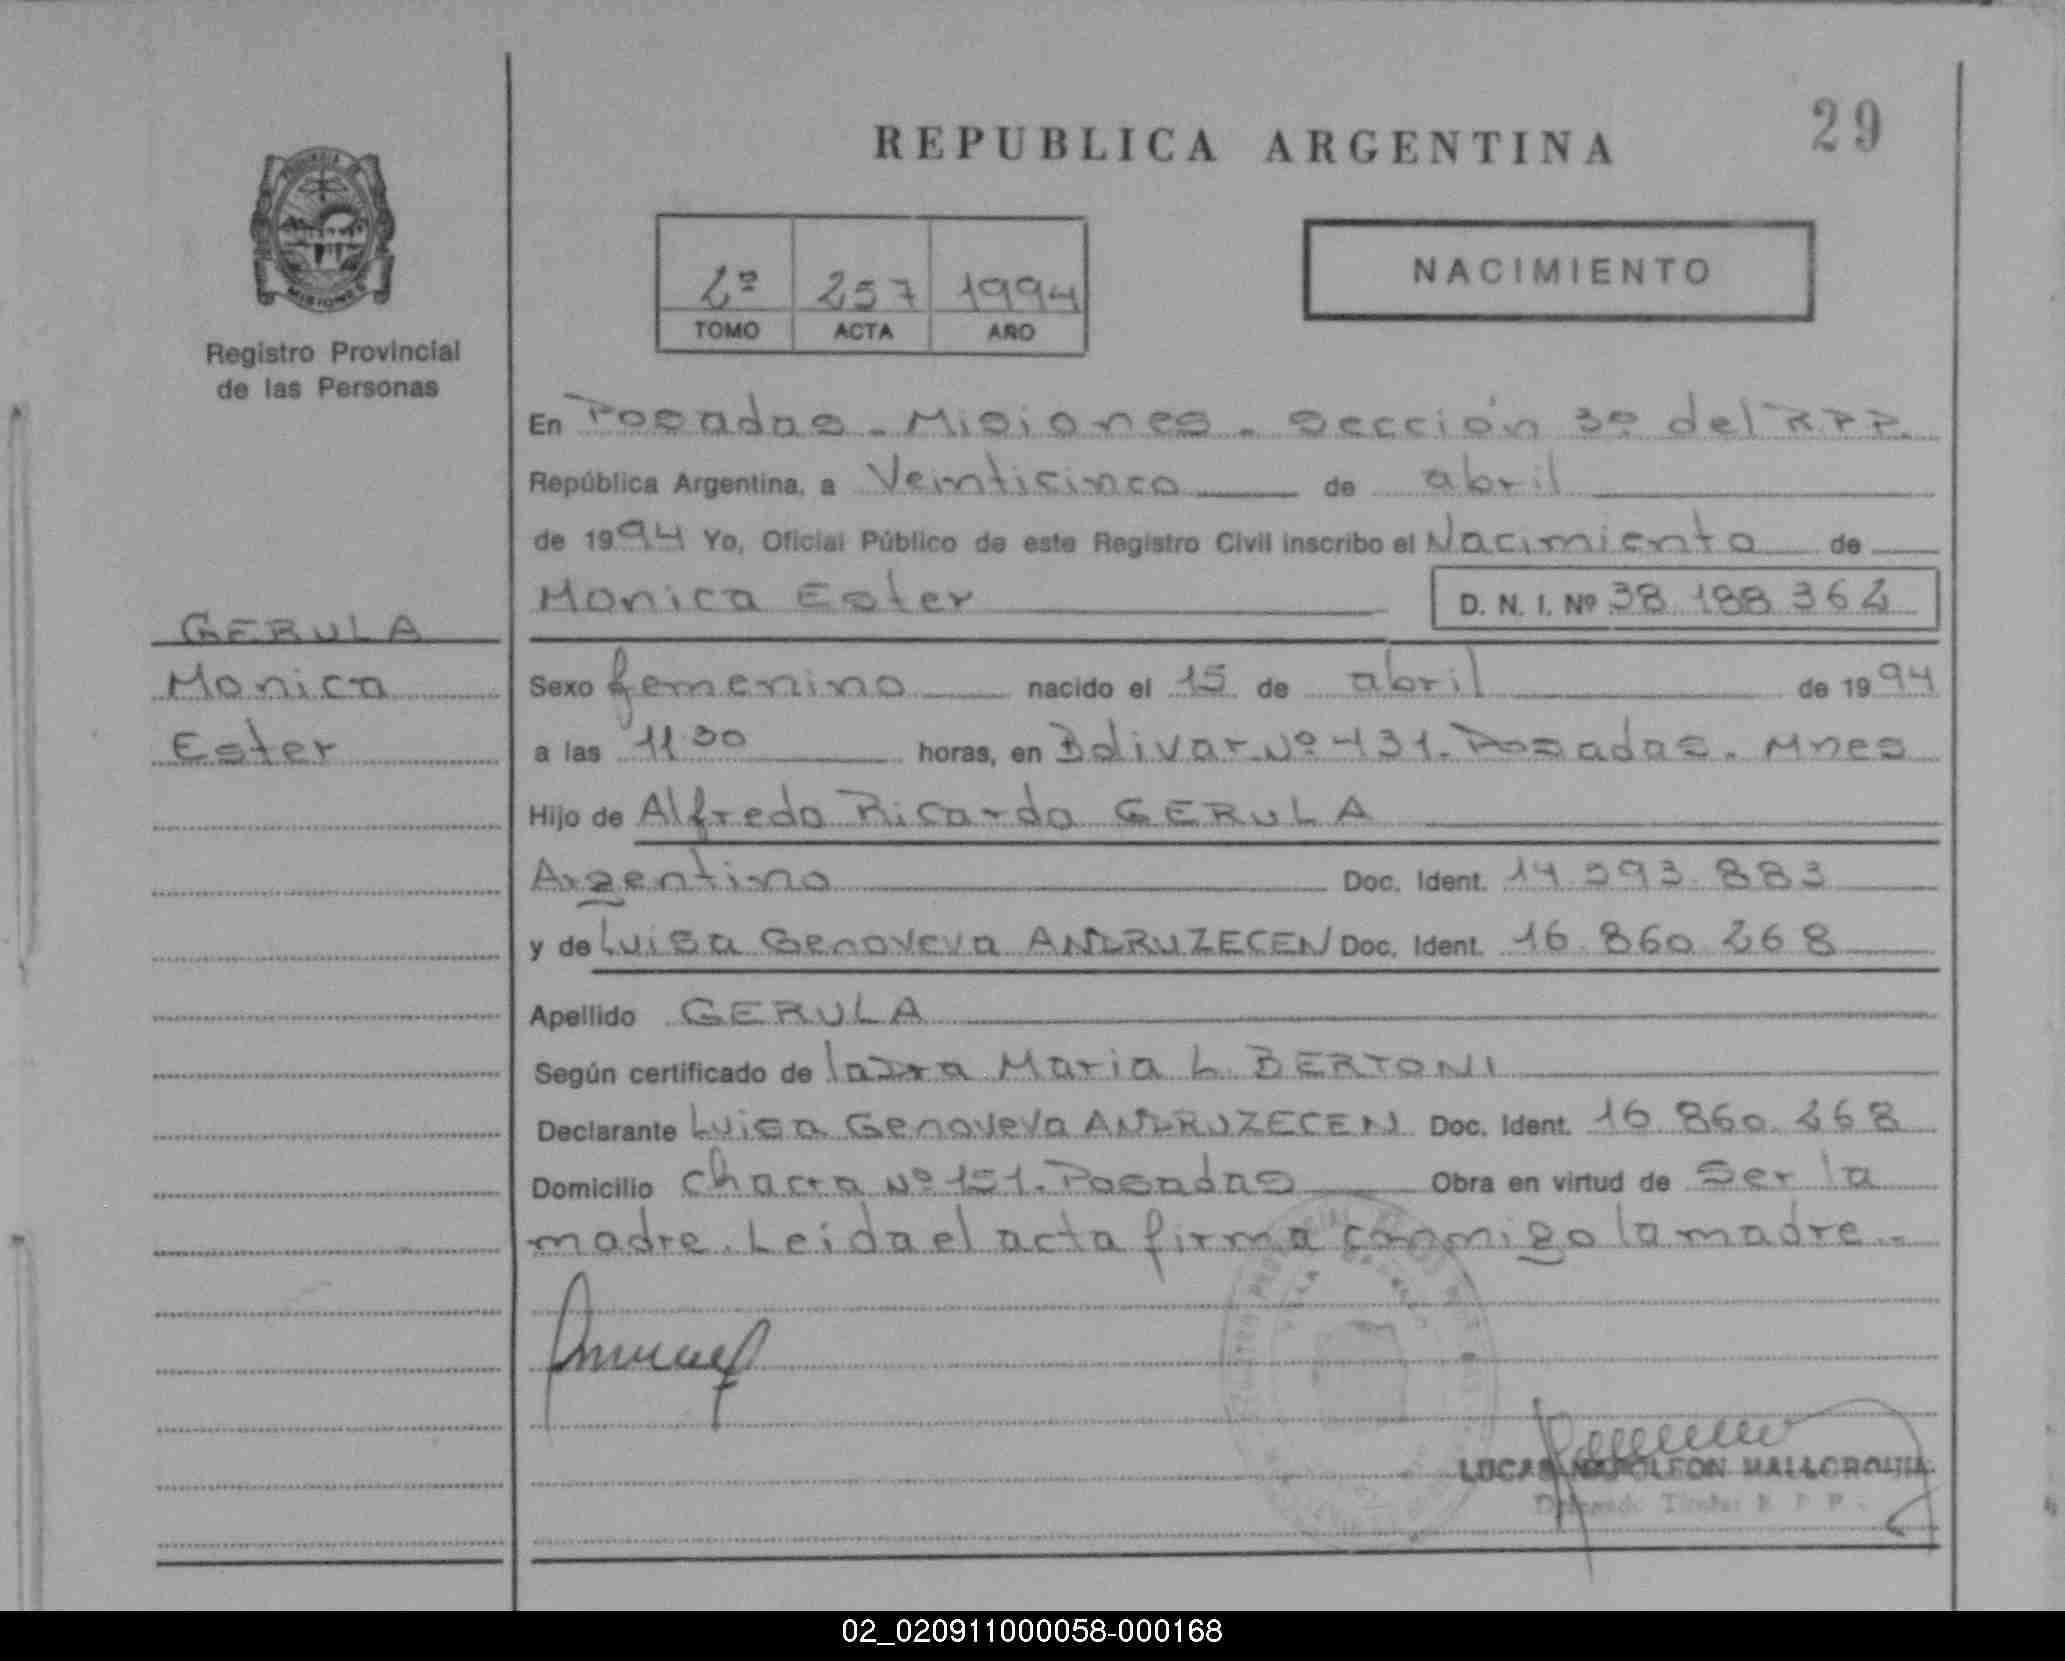 29
REPUBLICA ARGENTINA
2º 257 1994
TOMO ACTA AÑO
NACIMIENTO
MISIONES
Registro Provincial
de las Personas
GERULA
Monica
Ester
En Posadas - Misiones - Sección 3º del R.P.P.
República Argentina, a Veinticinco de abril
de 1994 Yo, Oficial Público de este Registro Civil inscribo el Nacimiento de
Monica Ester D. N. I. Nº 38.188.362
Sexo femenino nacido el 15 de abril de 1994
a las 11:30 horas, en Bolivar Nº 431. Posadas. Mnes
Hijo de Alfredo Ricardo GERULA
Argentino Doc. Ident. 14.393.883
y de Luisa Genoveva ANDRUZECEN Doc. Ident. 16.860.268
Apellido GERULA
Según certificado de la Dra Maria L. BERTONI
Declarante Luisa Genoveva ANDRUZECEN Doc. Ident. 16.860.268
Domicilio Chacra Nº 151. Posadas Obra en virtud de Ser la
madre. Leida el acta firma conmigo la madre.-
LUCAS NAPOLEON MALLORQUIN
Delegado Titular R.P.P.
02_020911000058-000168